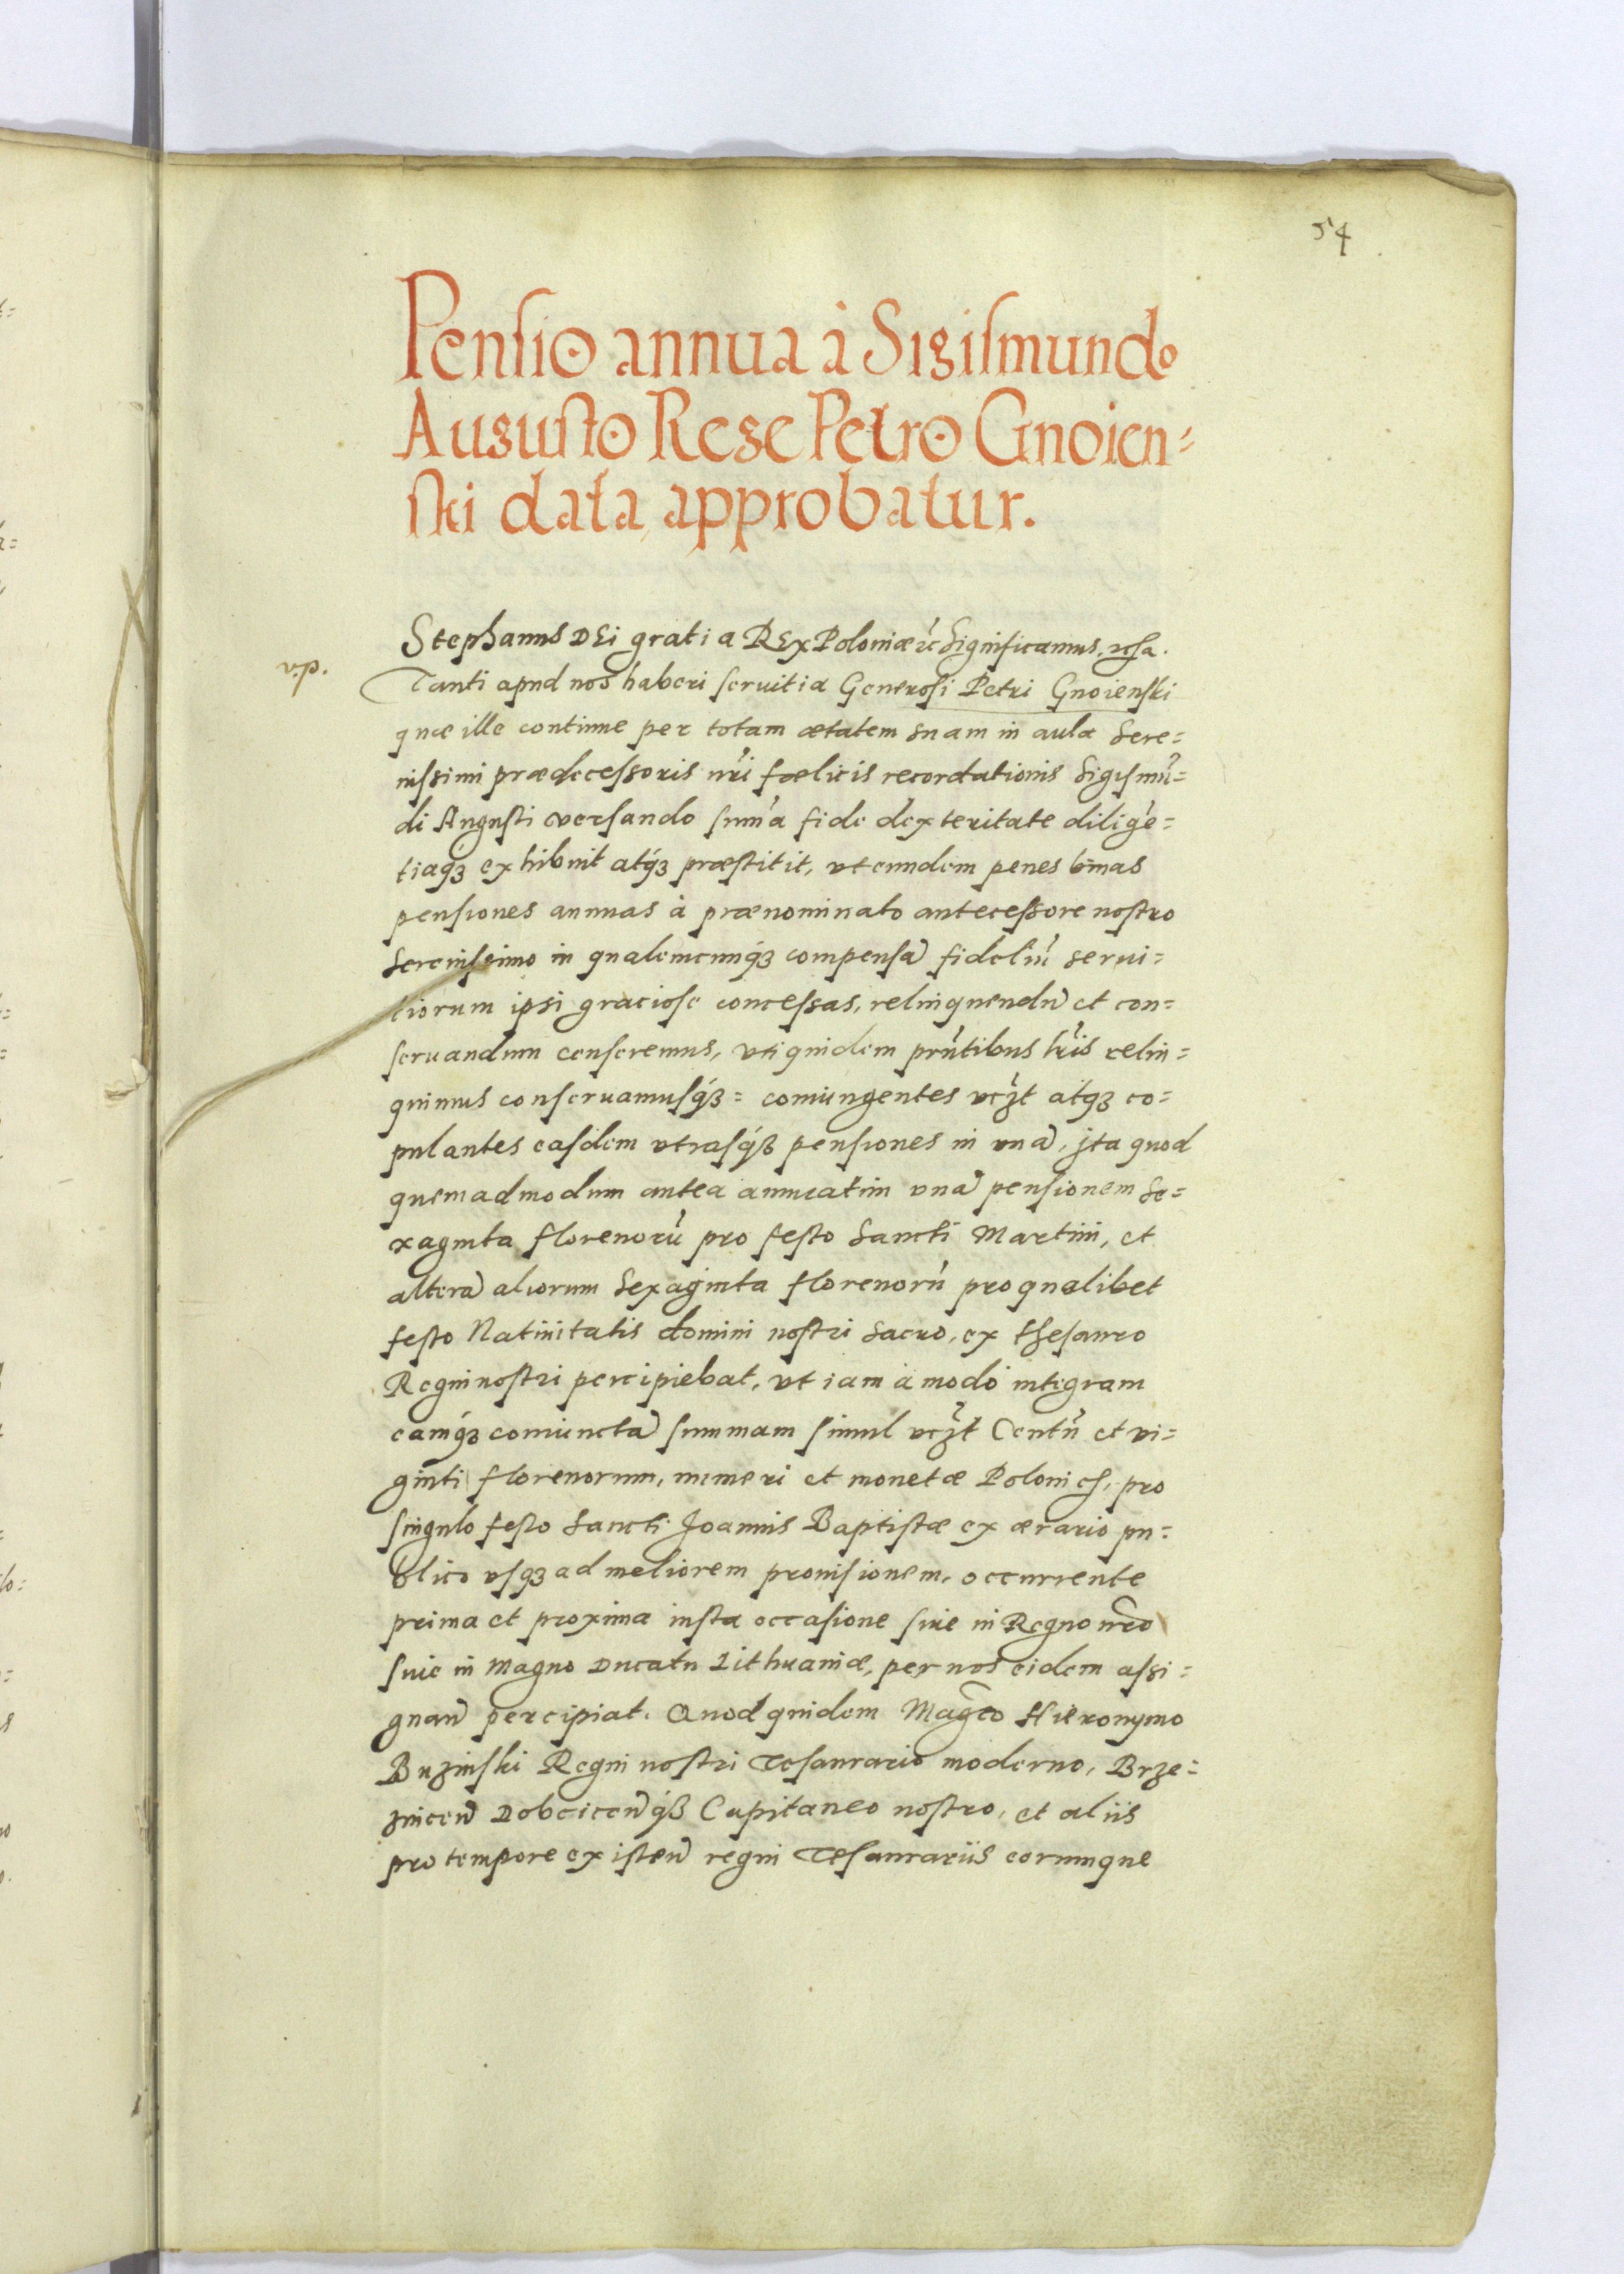 54
Pensio annua à Sigismundo
Augusto Rege Petro Gnoien=
ski data, approbatur.
Stephanus DEi gratia REx Poloniæ etc̃ Significamus, etca.
v.p.
Tanti apud nos haberi seruitia Generosi Petri Gnoienski
quæ ille continue per totam ætatem suam in aula Sere=
nissimi prædecessoris nr̃i fœlicis recordationis Sigismũ=
di Augusti versando sum̃a fide dexteritate diligẽ=
tiaq₃ exhibuit atq₃ præstitit, vt eundem penes binas
pensiones annuas à prænominato antecessore nostro
Serenissimo in qualemcunq₃ compensã fideliũ serui=
tiorum ipsi graciose concessas, relinquendũ et con=
seruandum censeremus, vti quidem pñtibus lr̃is relin=
quimus conseruamusq₃= coniungentes vcz̃t atq₃ co=
pulantes easdem vtrasq₃ pensiones in vnã, jta quod
quemadmodum antea annuatim vnã pensionem Se=
xaginta florenorũ pro festo Sancti Martini, et
alterã aliorum Sexaginta florenorũ pro qualibet
festo Natiuitatis domini nostri Sacro, ex thesauro
Regni nostri percipiebat, vt iam à modo integram
eamq₃ coniunctã summam simul vcz̃t Centũ et vi=
ginti florenorum, numeri et monetæ Polonich, pro
singulo festo Sancti Joannis Baptistæ ex ærario pu=
blico vsq₃ ad meliorem prouisionem, occurrente
prima et proxima iusta occasione siue in Regno nr̃o
siue in Magno Ducatu Lithuaniæ, per nos eidem assi=
gnañ percipiat. Quod quidem Mag̃co Hieronymo
Buzinski Regni nostri Tesaurario moderno, Brze=
zniceñ Dobcicеñq₃ Capitaneo nostro, et aliis
pro tempore existeñ regni Tesaurariis eorumque